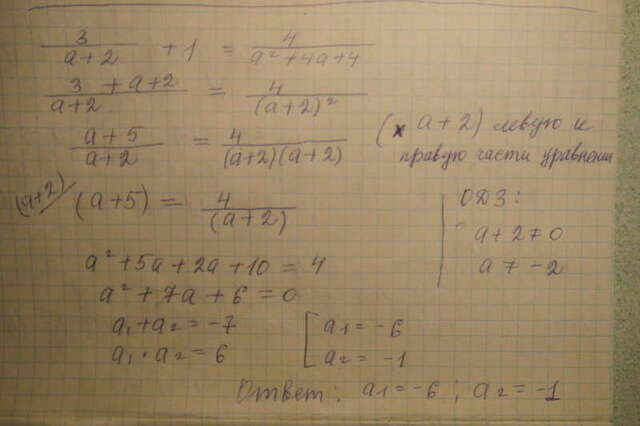 3/(a+2) + 1 = 4/(a²+4a+4)
(3+a+2)/(a+2) = 4/(a+2)²
(a+5)/(a+2) = 4/((a+2)(a+2)) (× a+2) левую и
правую части уравнения
(a+2)/ (a+5) = 4/(a+2)
ОДЗ:
a+2≠0
a≠-2
a²+5a+2a+10=4
a²+7a+6=0
a₁+a₂=-7
a₁·a₂=6
[a₁=-6
a₂=-1
Ответ: a₁=-6; a₂=-1